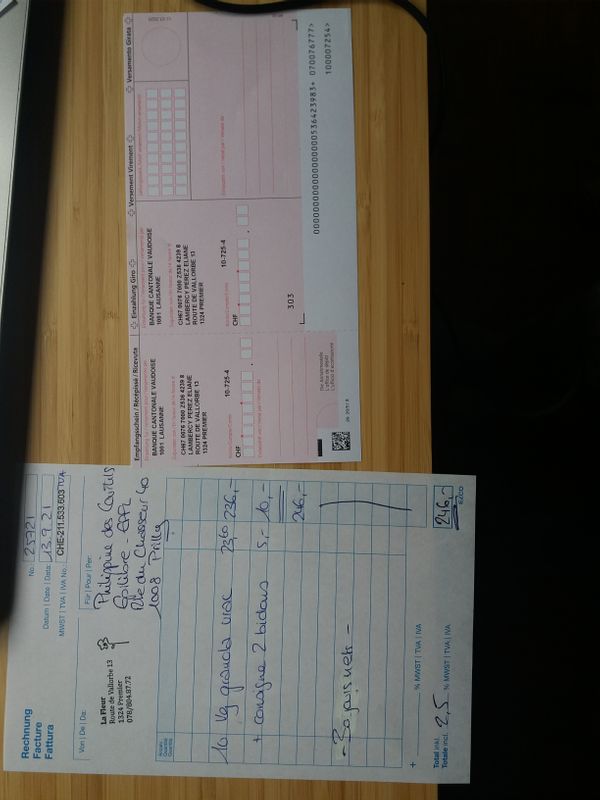 Rechnung
Facture
Fattura
No.: 25721
Datum | Date | Data: 13.9.21
MWST | TVA | IVA No.: CHE-211.533.603 TVA
Von | De | Da:
La Fleur
Route de Vallorbe 13
1324 Premier
078/804.87.72
Für | Pour | Per:
Philippine des Courtils
Epilibre - EPFL
Rte du Chasseur 40
1008 Prilly
Anzahl
Quantité
Quantità
10 kg granola vrac 23,60 236,-
+ consigne 2 bidons 5,- 10,-
246,-
- 30 jours nets -
+ % MWST | TVA | IVA
Total inkl.
Totale incl. 2,5 % MWST | TVA | IVA 246,-
EZCO
Empfangsschein / Récépissé / Ricevuta
Einzahlung für / Versement pour / Versamento per
BANQUE CANTONALE VAUDOISE
1001 LAUSANNE
Zugunsten von / En faveur de / A favore di
CH67 0076 7000 Z536 4239 8
LAMBERCY PEREZ ELIANE
ROUTE DE VALLORBE 13
1324 PREMIER
Konto / Compte / Conto 10-725-4
CHF
Einbezahlt von / Versé par / Versato da
Die Annahmestelle
L'office de dépôt
L'ufficio d'accettazione
Einzahlung Giro
Versement Virement
Versamento Girata
Einzahlung für / Versement pour / Versamento per
BANQUE CANTONALE VAUDOISE
1001 LAUSANNE
Zugunsten von / En faveur de / A favore di
CH67 0076 7000 Z536 4239 8
LAMBERCY PEREZ ELIANE
ROUTE DE VALLORBE 13
1324 PREMIER
Konto / Compte / Conto 10-725-4
CHF
303
Zahlungszweck / Motif versement / Motivo versamento
Einbezahlt von / Versé par / Versato da
000000000000000000536423983+ 070076777>
100007254>